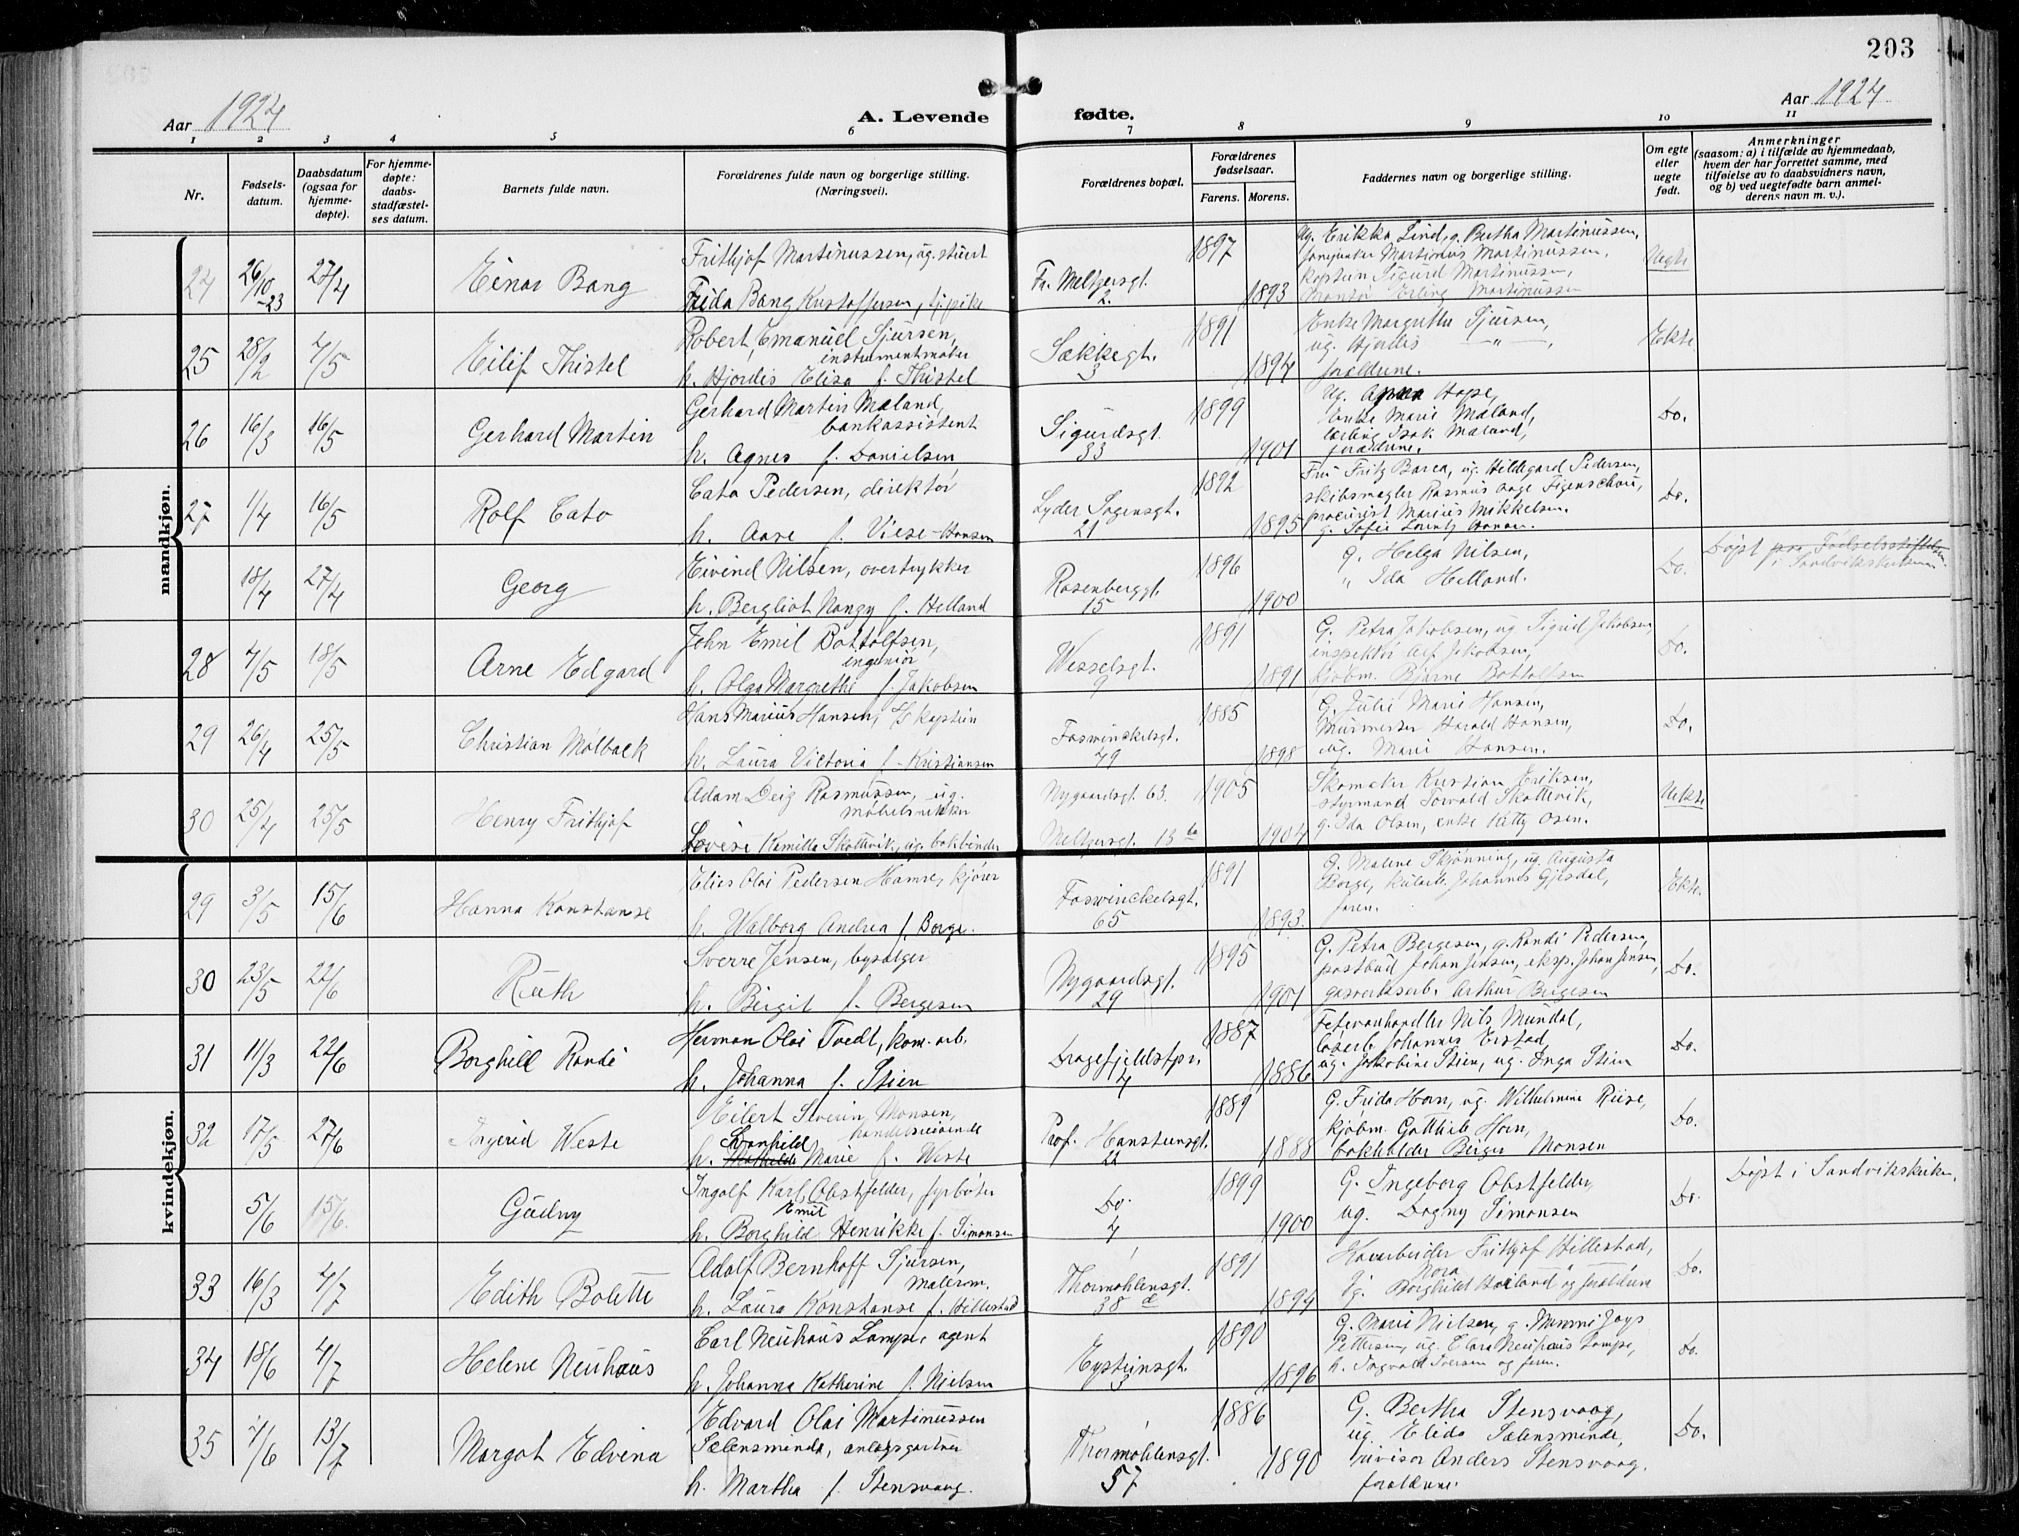 203
Aar 1924
A. Levende fødte.
Aar 1924
1 2 3 4 5 6 7 8 9 10 11
Nr.
Fødsels-
datum.
Daabsdatum
(ogsaa for
hjemme-
døpte).
For hjemme-
døpte:
daabs-
stadfæstel-
ses datum.
Barnets fulde navn.
Forældrenes fulde navn og borgerlige stilling.
(Næringsvei).
Forældrenes bopæl.
Forældrenes
fødselsaar.
Farens. Morens.
Faddernes navn og borgerlige stilling.
Om egte
eller
uegte
født.
Anmerkninger
(saasom: a) i tilfælde av hjemmedaab,
hvem der har forrettet samme, med
tilføielse av to daabsvidners navn,
og b) ved uegtefødte barn anmel-
derens navn m. v.).
mandkjøn.
24 26/10-23 27/4 Einar Bang
Frithjof Martinussen, ug. stuert
Frida Bang Kristoffersen,
Fr. Meltzersgt. 2.
1897 1893
Ug. Erikka Lind, g. Bertha Martinussen,
Martinius Martinussen,
kaptein Sigurd Martinussen,
Erling Martinussen
Uegte
25 28/2 4/5 Eilif Thistel
Robert Emanuel Sjursen,
instrumentmaker
h. Hjordis Elisa f. Thistel
Sækkegt. 3
1891 1894
Enke Margrethe Sjursen,
ug. Hjordis —"—,
forældrene.
Ekte
26 16/3 16/5 Gerhard Martin
Gerhard Martin Mæland,
bankassistent
h. Agnes f. Danielsen
Sigurdsgt. 33
1899 1901
Ug. Anna Hope,
Enke Marie Mæland,
lærling Isak Mæland,
forældrene.
Do.
27 1/4 16/5 Rolf Cato
Cato Pedersen, direktør
h. Aase f. Viese-Hansen
Lyder Sagensgt. 21
1892 1895
Fru Fritz Barca, ug. Hildegard Pedersen,
skibsmægler Rasmus Aage Figenschou,
procurist Marius Mikkelsen.
g. Sofie Lorentz Hansen.
Do.
18/4 27/4 Georg
Eivind Nilsen, overtrykker
h. Bergliot Nangy f. Helland
Rosenberggt. 15
1896 1900
g. Helga Nilsen,
" Ida Helland.
Do.
Døpt paa Fødselsstiftelsen
i Sandvikskirken.
28 4/5 18/5 Arne Edgard
John Emil Bottolfsen,
ingeniør
h. Olga Margrethe f. Jakobsen
Wesselsgt. 9
1891 1891
G. Petra Jakobsen, ug. Sigrid Jakobsen,
inspektør Leif Jakobsen,
kjøbm. Bjarne Bottolfsen
Do.
29 26/4 25/5 Christian Mølback
Hans Marius Hansen, kaptein
h. Laura Victoria f. Kristiansen
Foswinckelsgt. 49
1885 1898
G. Julie Marie Hansen,
Murmester Harald Hansen,
ug. Marie Hansen.
Do.
30 25/4 25/5 Henry Frithjof
Adam Deig Rasmussen, ug.
møbelsnekker
Lovise Kamilla Skottvik, ug. bokbinder
Nygaardsgt. 63.
Meltzersgt. 13 b
1905 1904
Skomaker Kristian Eriksen,
styrmand Torvald Skottvik,
g. Ida Olsen, enke Kitty Osen.
Uekte
kvindekjøn.
29 3/5 15/6 Hanna Konstanse
Elias Olai Pedersen Hamre, kjører
h. Walborg Andrea f. Borge.
Foswinckelsgt. 65
1891 1893
G. Malene Skjønning, ug. Augusta
Borge, Johannes Gjesdal,
faren.
Ekte
30 23/5 22/6 Ruth
Sverre Jensen, bysælger
h. Birgit f. Bergesen
Nygaardsgt. 29
1895 1901
G. Petra Bergesen, g. Randi Pedersen,
postbud Johan Jensen, eksp. Johan Jensen,
gasverksarb. Arthur Bergesen
Do.
31 11/3 22/6 Borghill Randi
Herman Olai Tvedt, kom. arb.
h. Johanna f. Stien
Dragefjeldstpr. 4
1887 1886
Fetevarehandler Nils Mundal,
løsarb. Johannes Erstad,
ug. Jakobine Stien, ug. Inga Stien
Do.
32 17/5 27/6 Ingerid Weste
Eilert Severin Monsen,
handelsreisende
h. Ranhild Mathilde Marie f. Weste
Prof. Hansteensgt. 22
1889 1888
G. Frida Horn, ug. Wilhelmine Riise,
kjøbm. Gottlieb Horn,
bokholder Birger Monsen
Do.
5/6 15/6 Gudny
Ingolf Karl Emil Obstfelder, fyrbøter
h. Borghild Henrikke f. Simonsen
Do. 4
1899 1900
G. Ingeborg Obstfelder,
ug. Dagny Simonsen
Do.
Døpt i Sandvikskirken.
33 16/3 4/7 Edith Bolette
Adolf Bernhoff Sjursen,
malerm.
h. Laura Konstanse f. Hillestad
Thormøhlensgt. 38
1891 1894
Frithjof Hillestad,
Nora — " —,
g. Borghild Høiland og forældrene
Do.
34 18/6 4/7 Helene Neuhaus
Carl Neuhaus Lampe, agent
h. Johanna Katherine f. Nielsen
Eysteinsgt. 3
1890 1896
G. Marie Nielsen, g. Mimmi Joys
Pettersen, ug. Clara Neuhaus Lampe,
h. Ingvald Iversen og faren.
Do.
35 4/6 13/7 Margot Edvina
Edvard Olai Martinussen
Sælensminde, anlægsgartner
h. Martha f. Stensvaag.
Thormøhlensgt. 57
1886 1890
G. Bertha Stensvaag,
ug. Elida Sælensminde,
revisor Anders Stensvaag.
forældrene.
Do.